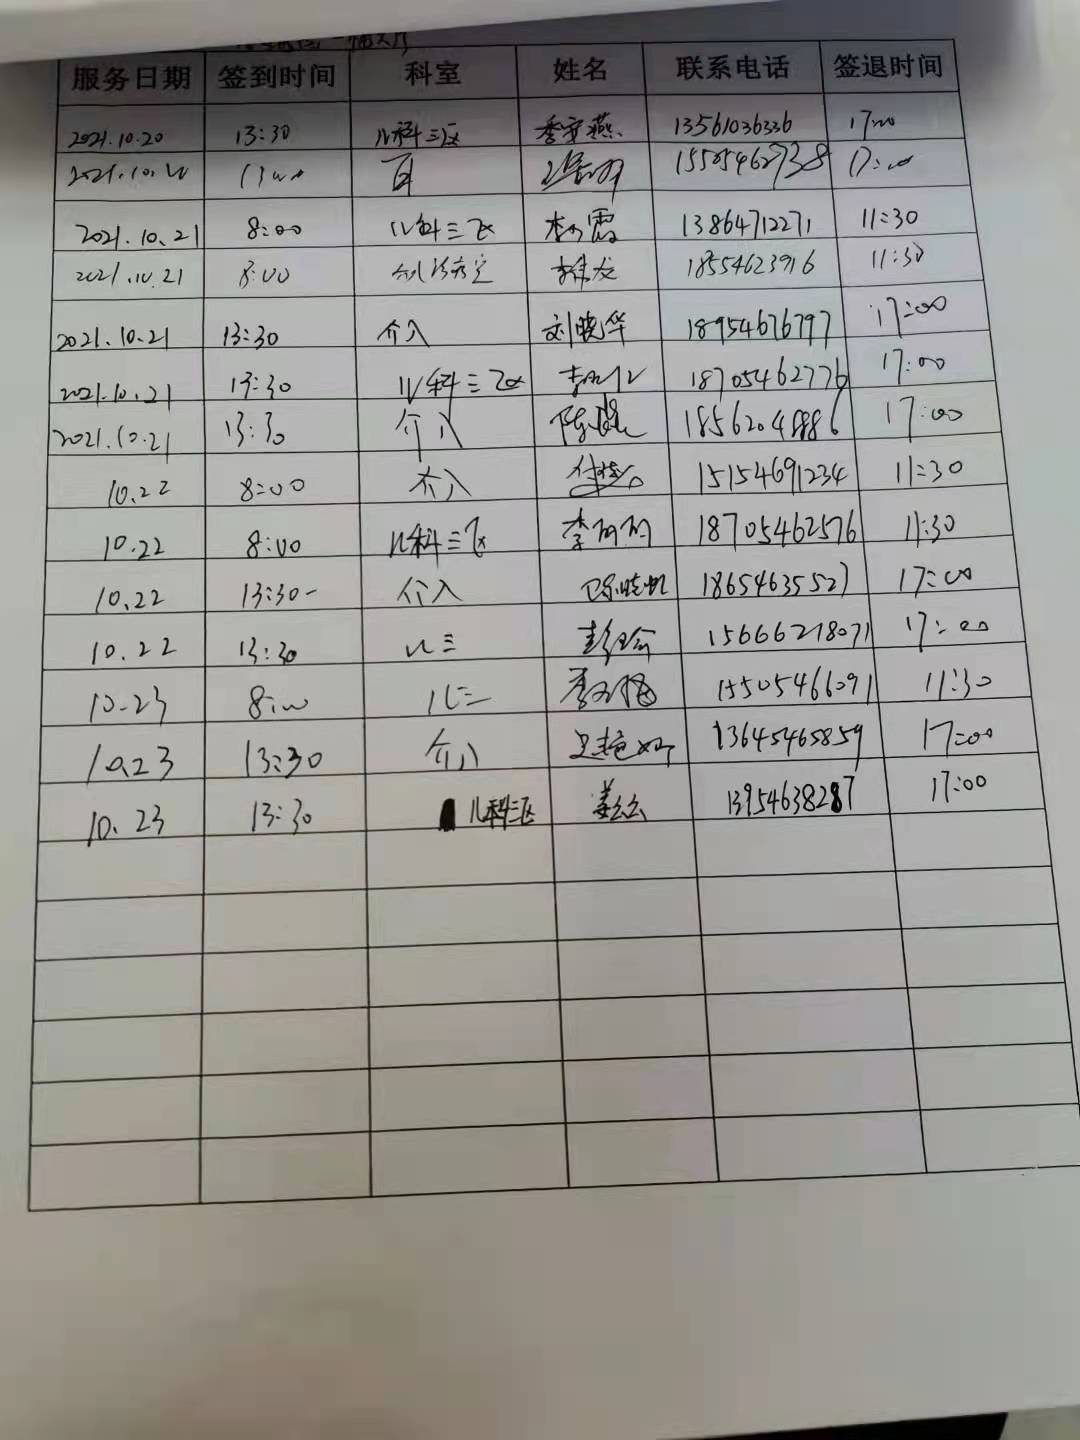 服务日期 签到时间 科室 姓名 联系电话 签退时间
2021.10.20 13:30 儿科三区 季安燕 13561036336 17:00
2021.10.20 15505462738 17:00
2021.10.21 8:00 儿科三区 13864712271 11:30
2021.10.21 8:00 18554623916 11:30
2021.10.21 13:30 介入 刘晓华 18954676797 17:00
2021.10.21 13:30 儿科三区 18705462776 17:00
2021.10.21 13:30 介入 17:00
10.22 8:00 介入 15154691234 11:30
10.22 8:00 儿科三区 李丽丽 18705462576 11:30
10.22 13:30 介入 陈晓帆 18654635527 17:00
10.22 13:30 儿三 15666218071 17:00
10.23 8:00 儿三 15505466091 11:30
10.23 13:30 介入 13645465859 17:00
10.23 13:30 儿科三区 姜云云 13954638287 17:00